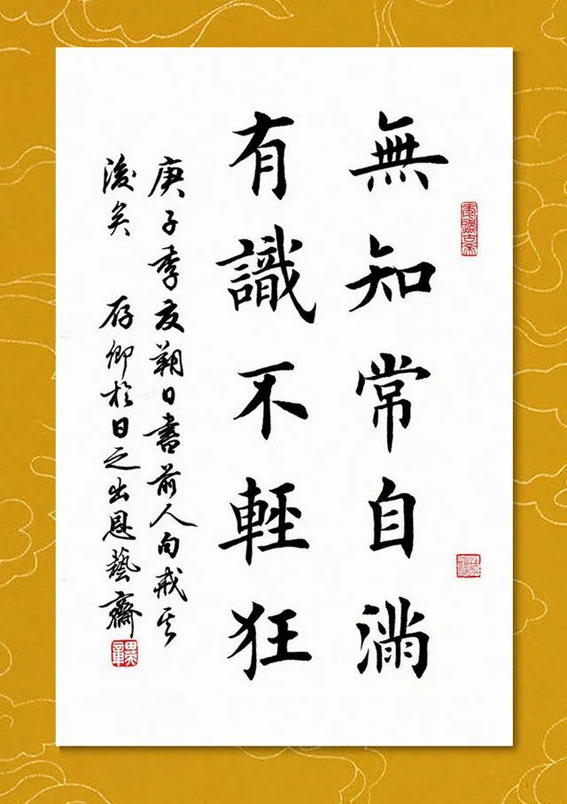 無知常自滿
有識不輕狂
庚子季夏朔日書前人句戒其
後矣 存卿於日之出恩藝齋